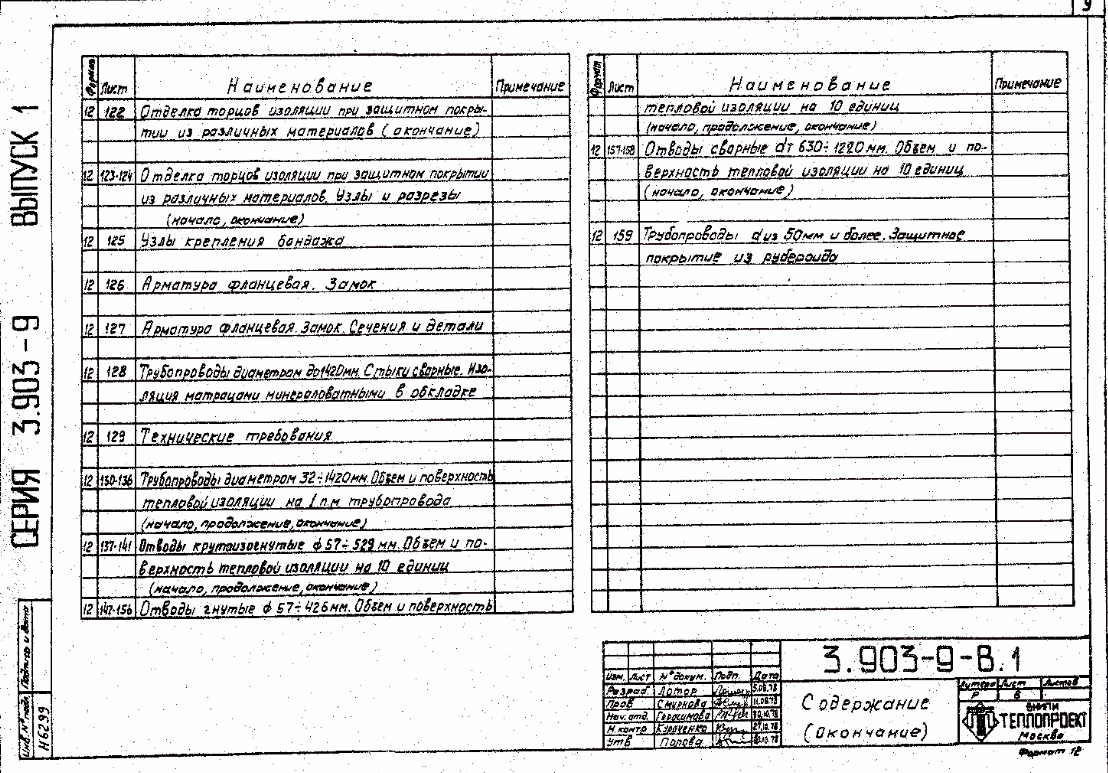 9
СЕРИЯ 3.903-9 ВЫПУСК 1
Формат Лист Наименование Примечание
12 122 Отделка торцов изоляции при защитном покры-
тии из различных материалов (окончание)
12 123-124 Отделка торцов изоляции при защитном покрытии
из различных материалов. Узлы и разрезы
(начало, окончание)
12 125 Узлы крепления бандажа
12 126 Арматура фланцевая. Замок
12 127 Арматура фланцевая. Замок. Сечения и детали
12 128 Трубопроводы диаметром до 1420мм. Стыки сварные. Изо-
ляция матрацами минераловатными в обкладке
12 129 Технические требования
12 130-136 Трубопроводы диаметром 32÷1420мм. Объем и поверхность
тепловой изоляции на 1 п.м трубопровода
(начало, продолжение, окончание)
12 137-141 Отводы крутоизогнутые ф 57÷529 мм. Объем и по-
верхность тепловой изоляции на 10 единиц
(начало, продолжение, окончание)
12 147-156 Отводы гнутые ф 57÷426мм. Объем и поверхность
Формат Лист Наименование Примечание
тепловой изоляции на 10 единиц
(начало, продолжение, окончание)
12 157-158 Отводы сварные dт 630÷1220мм. Объем и по-
верхность тепловой изоляции на 10 единиц
(начало, окончание)
12 159 Трубопроводы dиз 50мм и более. Защитное
покрытие из рубероида
Инв.№ подл. Подпись и дата
Н6299
3.903-9-В.1
Изм. Лист № докум. Подп. Дата
Разраб Лотор
Пров Смирнова
Нач. отд. Герасимова
Н контр Куриченко
Утв Попова
Содержание
(Окончание)
Литера Лист Листов
Р 6
ВНИПИ
ТЕПЛОПРОЕКТ
Москва
Формат 12